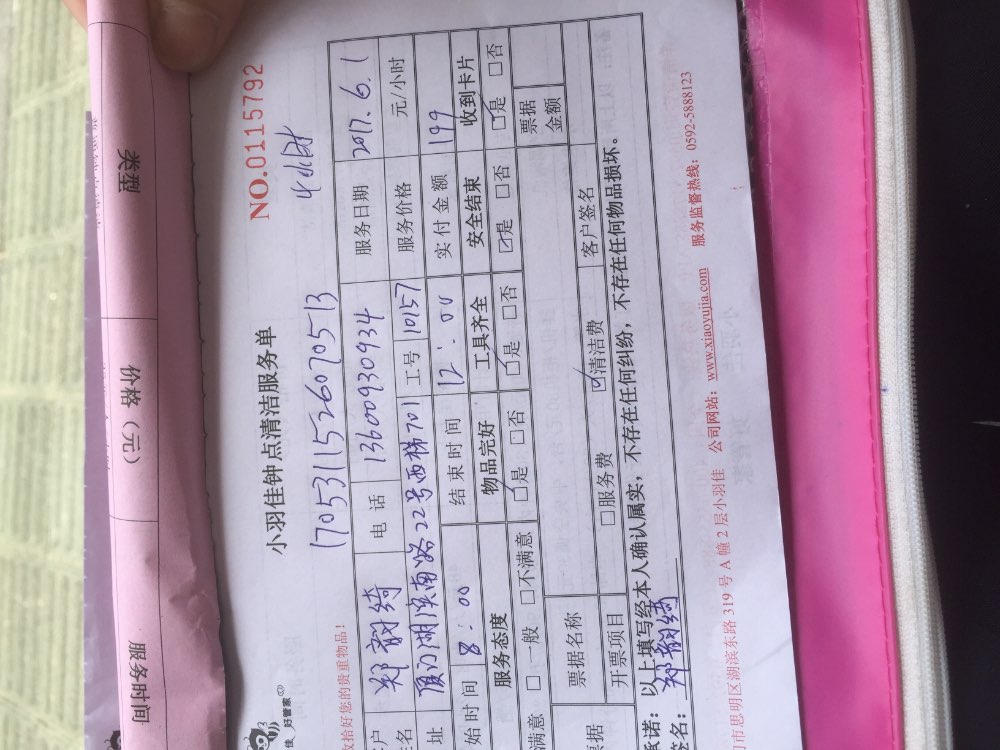 类型 价格（元） 服务时间
NO.0115792
小羽佳钟点清洁服务单
佳 好管家
4小时
1705311526070513
收拾好您的贵重物品！
户名 郑韵绮 电话 13600930934 服务日期 2017.6.1
址 厦门湖滨南路22号西梯701 工号 10157 服务价格 元/小时
始时间 8:00 结束时间 12:00 实付金额 199
服务态度 物品完好 工具齐全 安全结束 收到卡片
满意 □一般 □不满意 ☑是 □否 ☑是 □否 ☑是 □否 ☑是 □否
票据名称 票据金额
票据 开票项目 □服务费 ☑清洁费 客户签名
承诺：以上填写经本人确认属实，不存在任何纠纷，不存在任何物品损坏。
签名：郑韵绮
门市思明区湖滨东路 319 号 A 幢 2 层小羽佳 公司网站：www.xiaoyujia.com 服务监督热线：0592-5888123